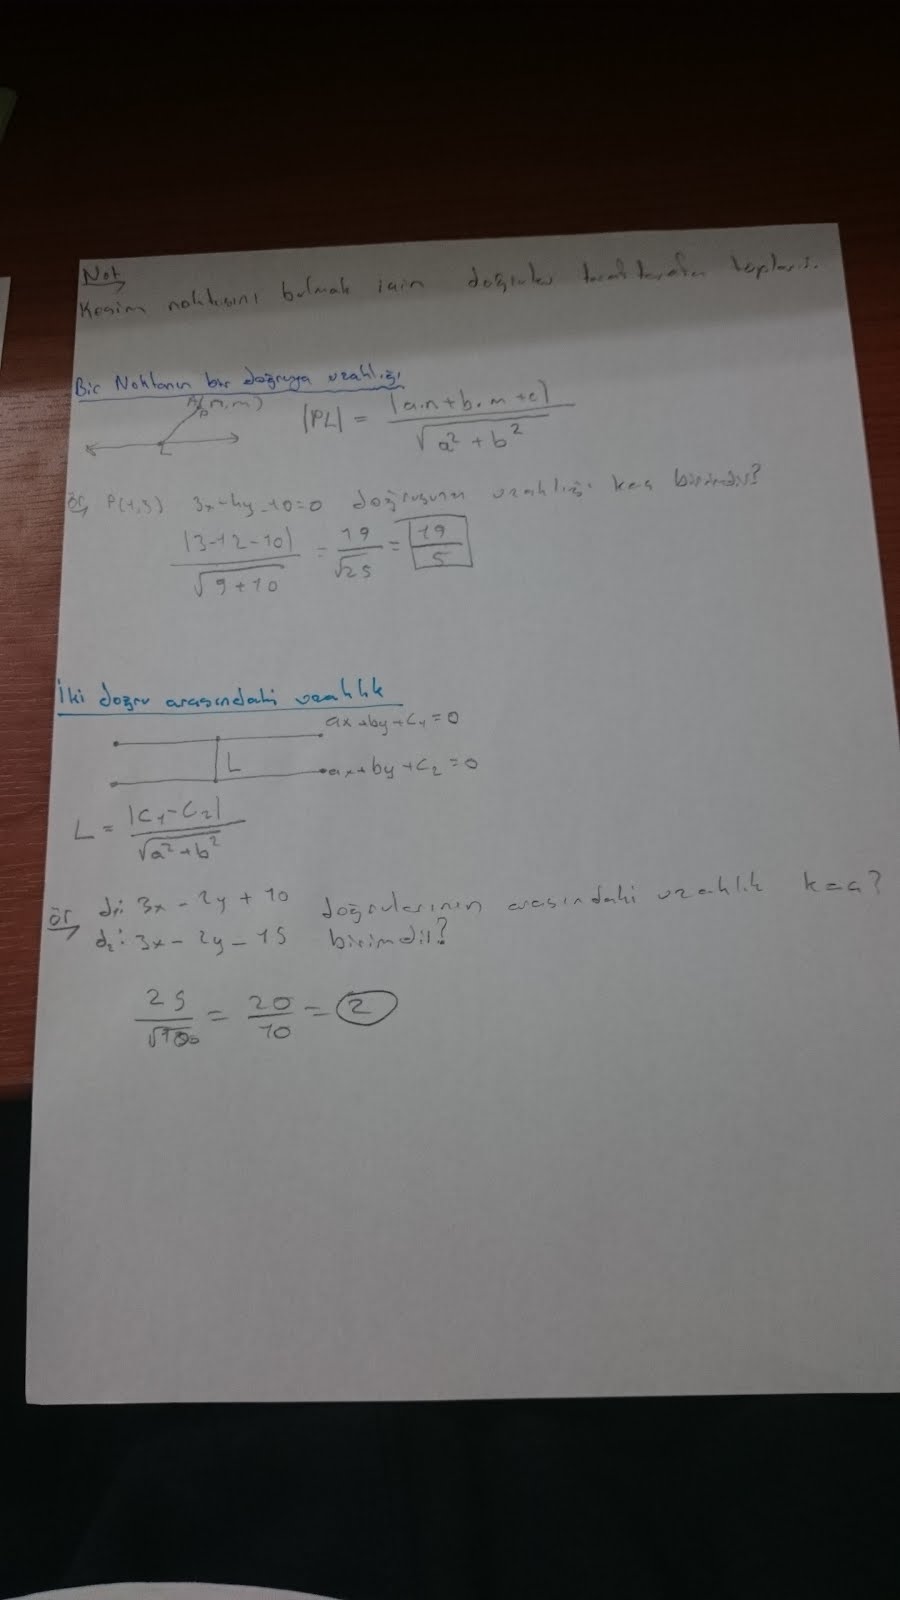 Not
Kesim noktasını bulmak için doğrular taraf tarafa toplanır.
Bir Noktanın bir doğruya uzaklığı
A(n,m)
P
L
|PL| = |a.n+b.m+c| / √a²+b²
ör P(1,3) 3x-4y-10=0 doğrusuna uzaklığı kaç birimdir?
|3-12-10| / √9+10 = 19/√25 = 19/5
İki doğru arasındaki uzaklık
ax+by+c₁=0
L
ax+by+c₂=0
L = |c₁-c₂| / √a²+b²
ör d₁: 3x-2y+10 doğrularının arasındaki uzaklık kaç?
d₂: 3x-2y-15 birimdir?
25/√100 = 20/10 = 2